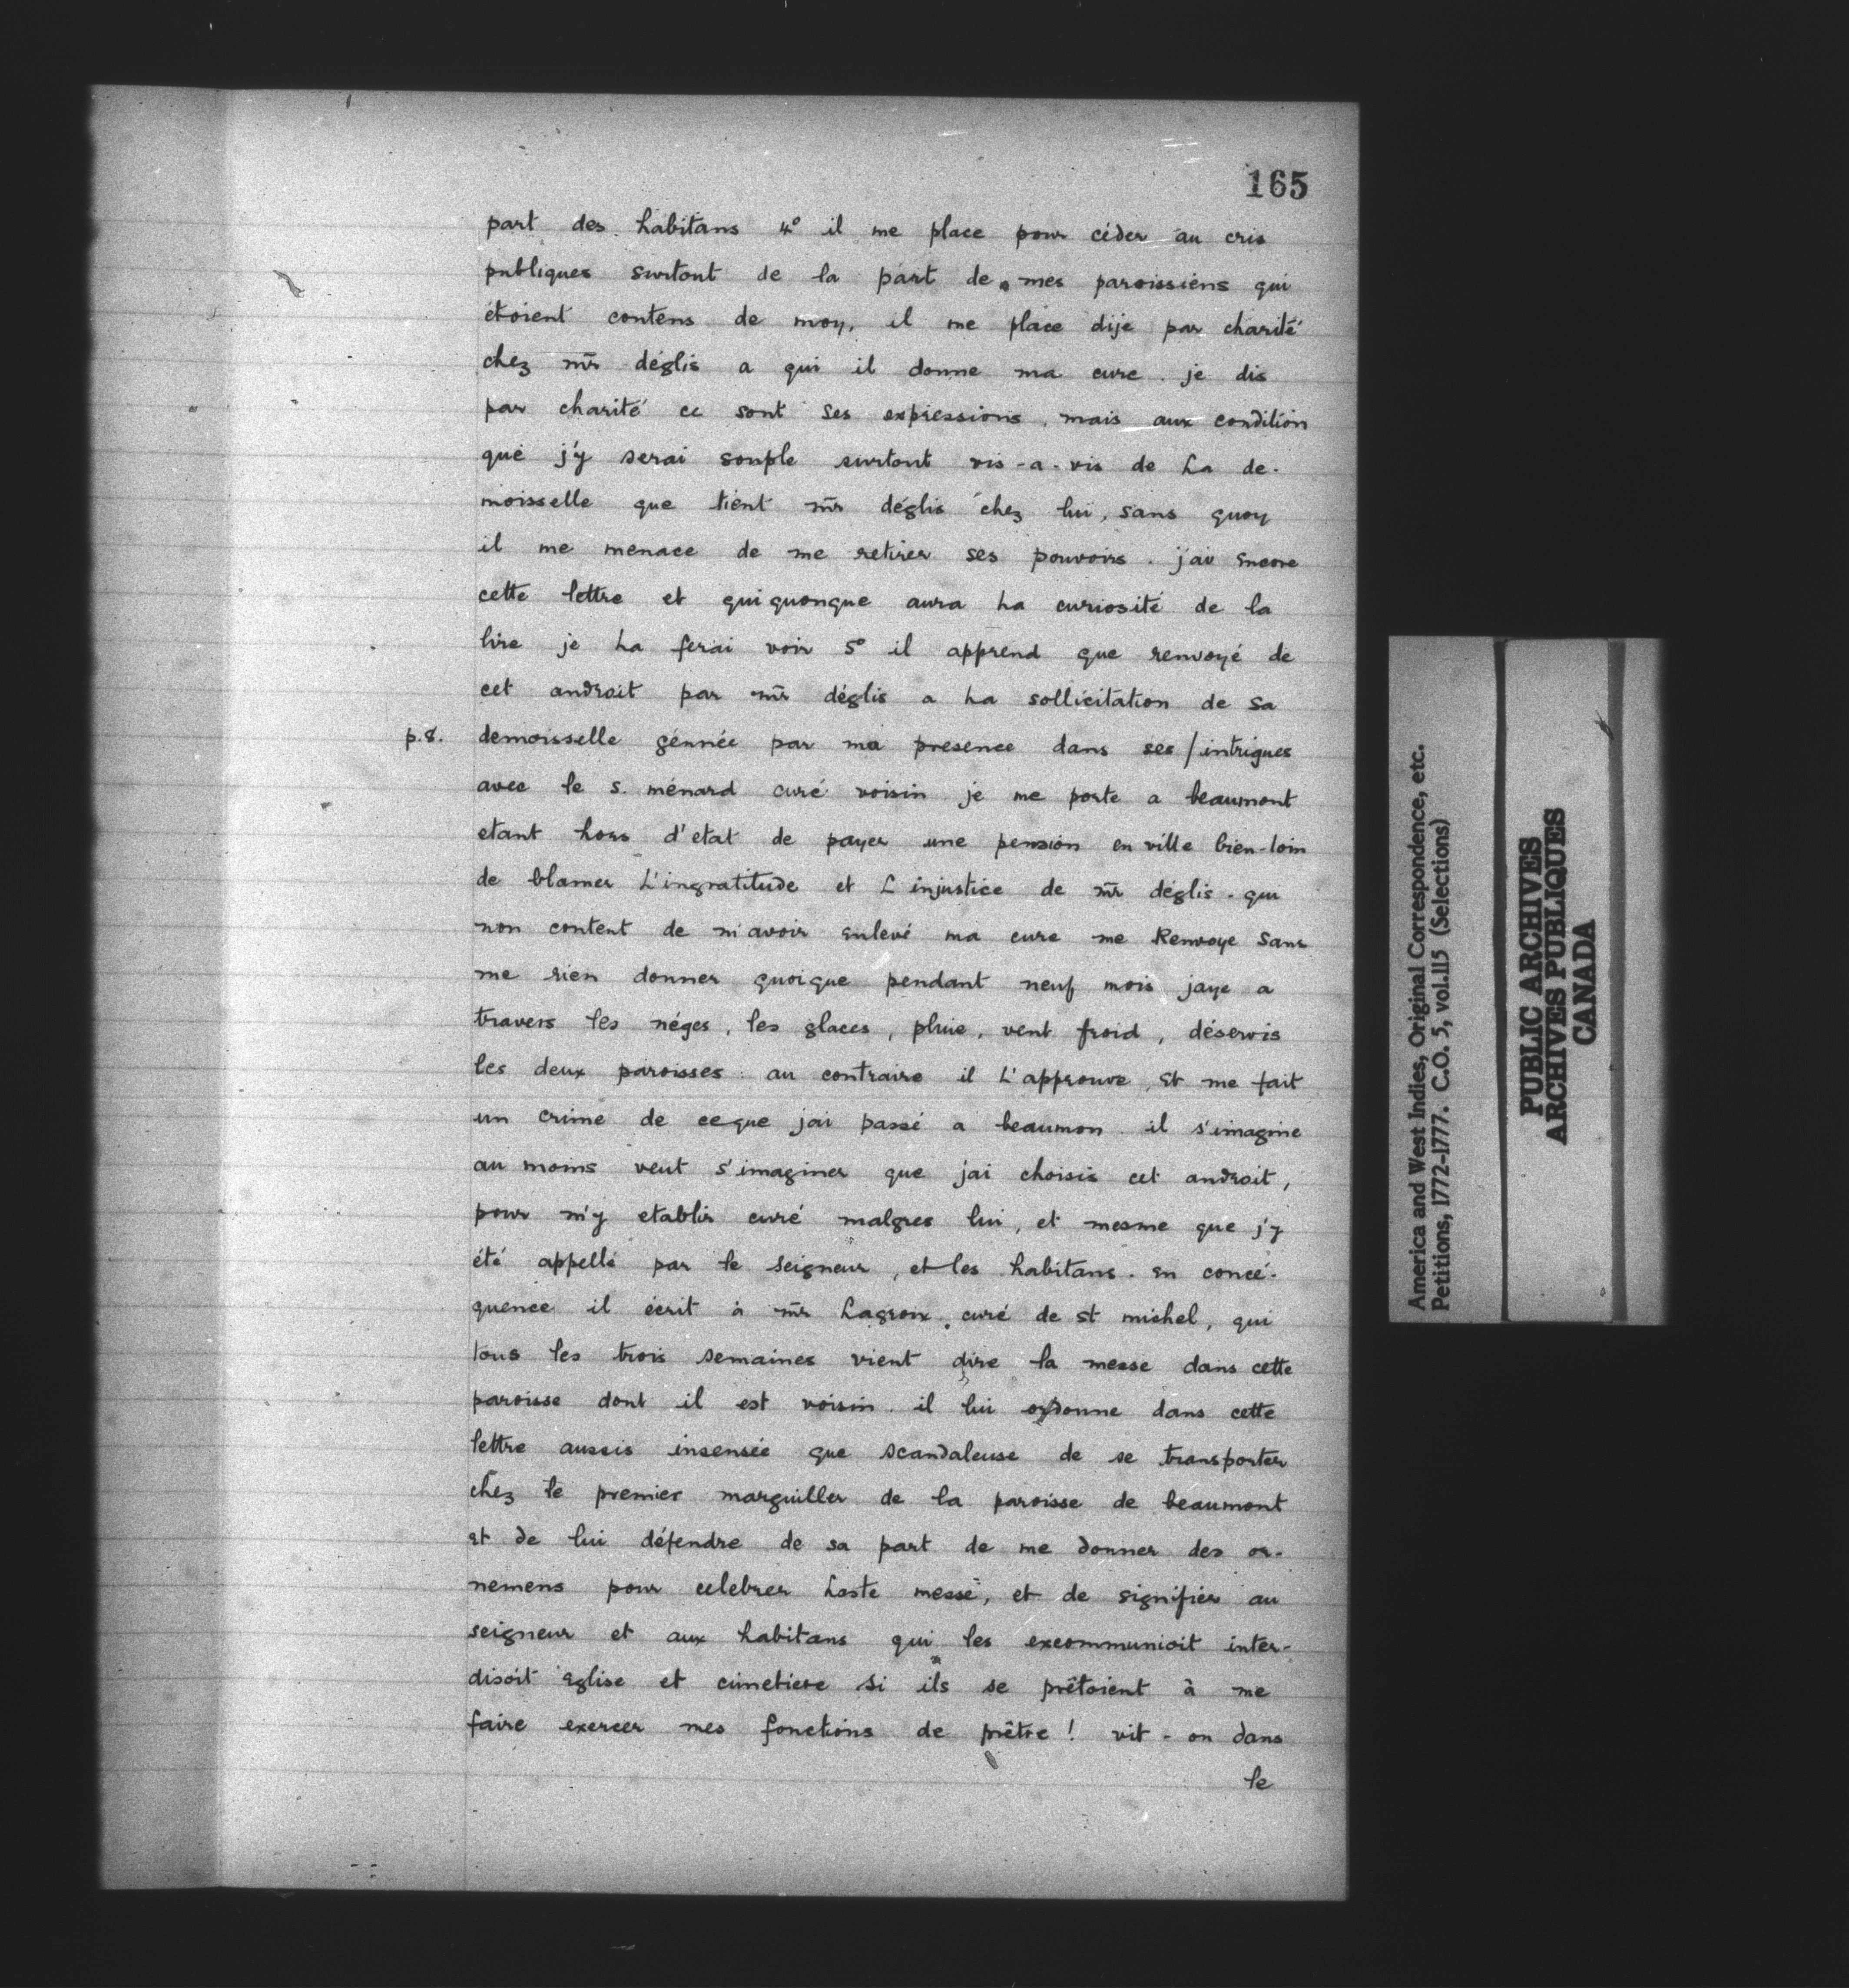 165
part des habitans 4° il me place pour céder au cris
publiques surtout de la part de mes paroissiens qui
étoient contens de moy, il me place dije par charité
chez mr déglis a qui il donne ma cure. je dis
par charité ce sont ses expressions, mais aux condition
que j'y serai souple surtout vis-a-vis de La de-
moisselle que tient mr déglis chez lui, sans quoy
il me menace de me retirer ses pouvoirs. j'ai encore
cette lettre et quiquonque aura La curiosité de la
lire je La ferai voir 5° il apprend que renvoyé de
cet androit par mr déglis a La sollicitation de sa
p.8. demoisselle génnée par ma presence dans ses / intrigues
avec le s. ménard curé voisin je me porte a beaumont
etant hors d'etat de payer une pension en ville bien-loin
de blamer L'ingratitude et L injustice de mr déglis. qui
non content de m'avoir enlevé ma cure me Renvoye sans
me rien donner quoique pendant neuf mois jaye a
travers les néges, les glaces, pluie, vent froid, déservis
les deux paroisses: au contraire il L'approuve, et me fait
un crime de ceque jai passé a beaumon. il s'imagine
au moins veut s'imaginer que j'ai choisis cet androit,
pour m'y etablir curé malgres lui, et mesme que j'y
été appellé par le seigneur, et les habitans. en concé-
quence il écrit à mr Lagroix. curé de st michel, qui
tous les trois semaines vient dire la messe dans cette
paroisse dont il est voisin. il lui ordonne dans cette
lettre aussis insensée que scandaleuse de se transporter
chez le premier marguiller de la paroisse de beaumont
et de lui défendre de sa part de me donner des or-
nemens pour celebrer Laste messe, et de signifier au
seigneur et aux habitans qui les excommunioit inter-
disoit eglise et cimetiere si ils se prêtoient à me
faire exercer mes fonctions de prêtre! vit-on dans
le
America and West Indies, Original Correspondence, etc.
Petitions, 1772-1777. C.O. 5, vol.115 (Selections)
PUBLIC ARCHIVES
ARCHIVES PUBLIQUES
CANADA